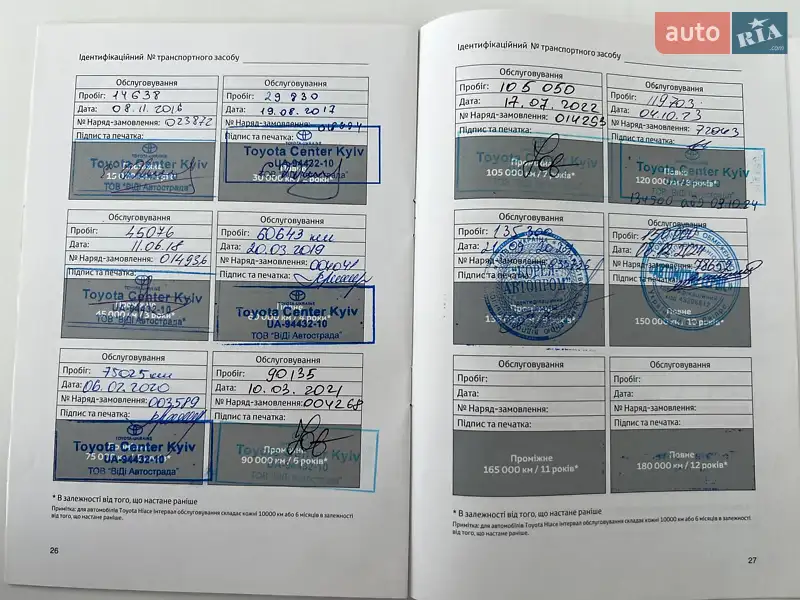 auto RIA.com
Ідентифікаційний № транспортного засобу
Обслуговування
Пробіг: 14638
Дата: 08.11.2016
№ Наряд-замовлення: 023872
Підпис та печатка:
Toyota Center Kyiv
UA-94432-10
ТОВ "ВіДі Автострада"
Обслуговування
Пробіг: 29830
Дата: 19.08.2017
№ Наряд-замовлення:
Підпис та печатка:
Toyota Center Kyiv
UA-94432-10
30 000 км / 2 роки*
ТОВ "ВіДі Автострада"
Обслуговування
Пробіг: 45076
Дата: 11.06.18
№ Наряд-замовлення: 014936
Підпис та печатка:
Toyota Center Kyiv
45 000 км / 3 роки*
ТОВ "ВіДі Автострада"
Обслуговування
Пробіг: 60643 км
Дата: 20.03.2019
№ Наряд-замовлення: 004041
Підпис та печатка:
Toyota Center Kyiv
UA-94432-10
ТОВ "ВіДі Автострада"
Обслуговування
Пробіг: 75025 км
Дата: 06.02.2020
№ Наряд-замовлення: 003589
Підпис та печатка:
TOYOTA-UKRAINE
Toyota Center Kyiv
UA-94432-10
ТОВ "ВіДі Автострада"
Обслуговування
Пробіг: 90135
Дата: 10.03.2021
№ Наряд-замовлення: 004268
Підпис та печатка:
Toyota Center Kyiv
90 000 км / 6 років*
* В залежності від того, що настане раніше
Примітка: для автомобілів Toyota Hiace інтервал обслуговування складає кожні 10000 км або 6 місяців в залежності
від того, що настане раніше.
26
Ідентифікаційний № транспортного засобу
Обслуговування
Пробіг: 105 050
Дата: 17.07.2022
№ Наряд-замовлення: 014293
Підпис та печатка:
105 000 км / 7 років*
Обслуговування
Пробіг: 119703
Дата: 04.10.23
№ Наряд-замовлення: 72043
Підпис та печатка:
Toyota Center Kyiv
120 000 км / 8 років*
Обслуговування
Пробіг: 135 300
Дата:
№ Наряд-замовлення:
Підпис та печатка:
АВТОПРОМ"
Обслуговування
Пробіг: 150 000
Дата:
№ Наряд-замовлення:
Підпис та печатка:
Повне
150 000 км / 10 років*
Обслуговування
Пробіг:
Дата:
№ Наряд-замовлення:
Підпис та печатка:
Проміжне
165 000 км / 11 років*
Обслуговування
Пробіг:
Дата:
№ Наряд-замовлення:
Підпис та печатка:
Повне
180 000 км / 12 років*
* В залежності від того, що настане раніше
Примітка: для автомобілів Toyota Hiace інтервал обслуговування складає кожні 10000 км або 6 місяців в залежності
від того, що настане раніше.
27